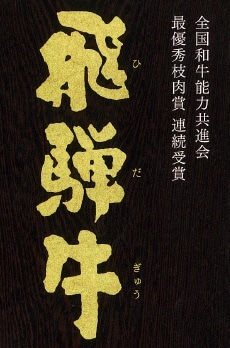 全国和牛能力共進会
最優秀枝肉賞 連続受賞
飛騨牛
ひだぎゅう